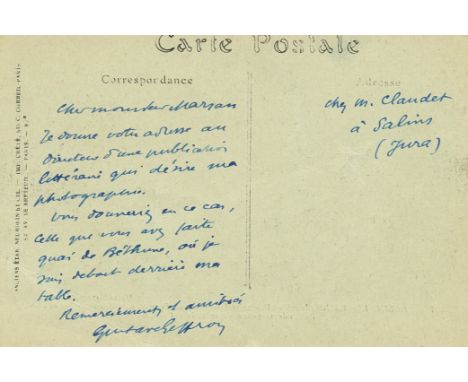 Carte Postale
Correspondance
Adresse
Cher monsieur Marsan
Je donne votre adresse au
Directeur d'une publication
littéraire qui désire ma
photographie.
Vous donneriez en ce cas,
celle que vous avez faite
quai de Béthune, où je
suis debout derrière ma
table.
Remerciements et amitiés
Gustave Geffroy
chez M. Claudet
à Salins
(Jura)